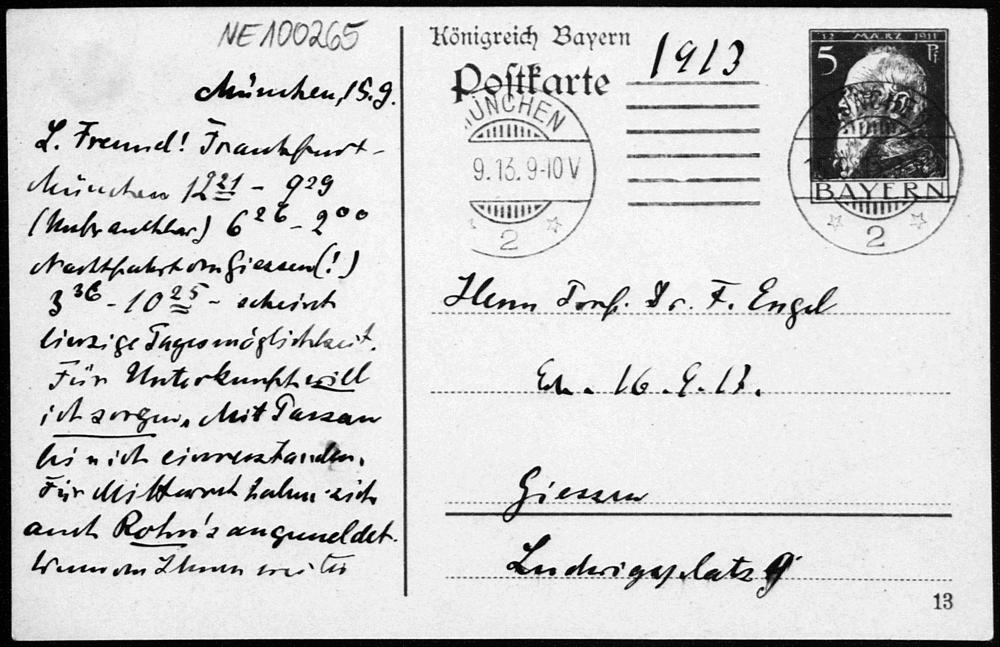 NE100265
München, 15.9.
L. Freund! Frankfurt-
München 12 21 - 9 29
(Unbrauchbar) 6 26 - 2 00
Nachtfahrt von Giessen (!)
3 36 - 10 25 - scheint
einzige Tagesmöglichkeit.
Für Unterkunft will
ich sorgen. Mit Passau
bin ich einverstanden.
Für Mittwoch haben sich
auch Rohn's angemeldet.
Wenn von Ihnen weiter
Königreich Bayern
Postkarte
1913
12 MÄRZ 1911
5 Pf
BAYERN
MÜNCHEN
9.13.9-10V
2
MÜNCHEN
2
Herrn Prof. Dr. F. Engel
16.9.13.
Giessen
Ludwigsplatz 9
13